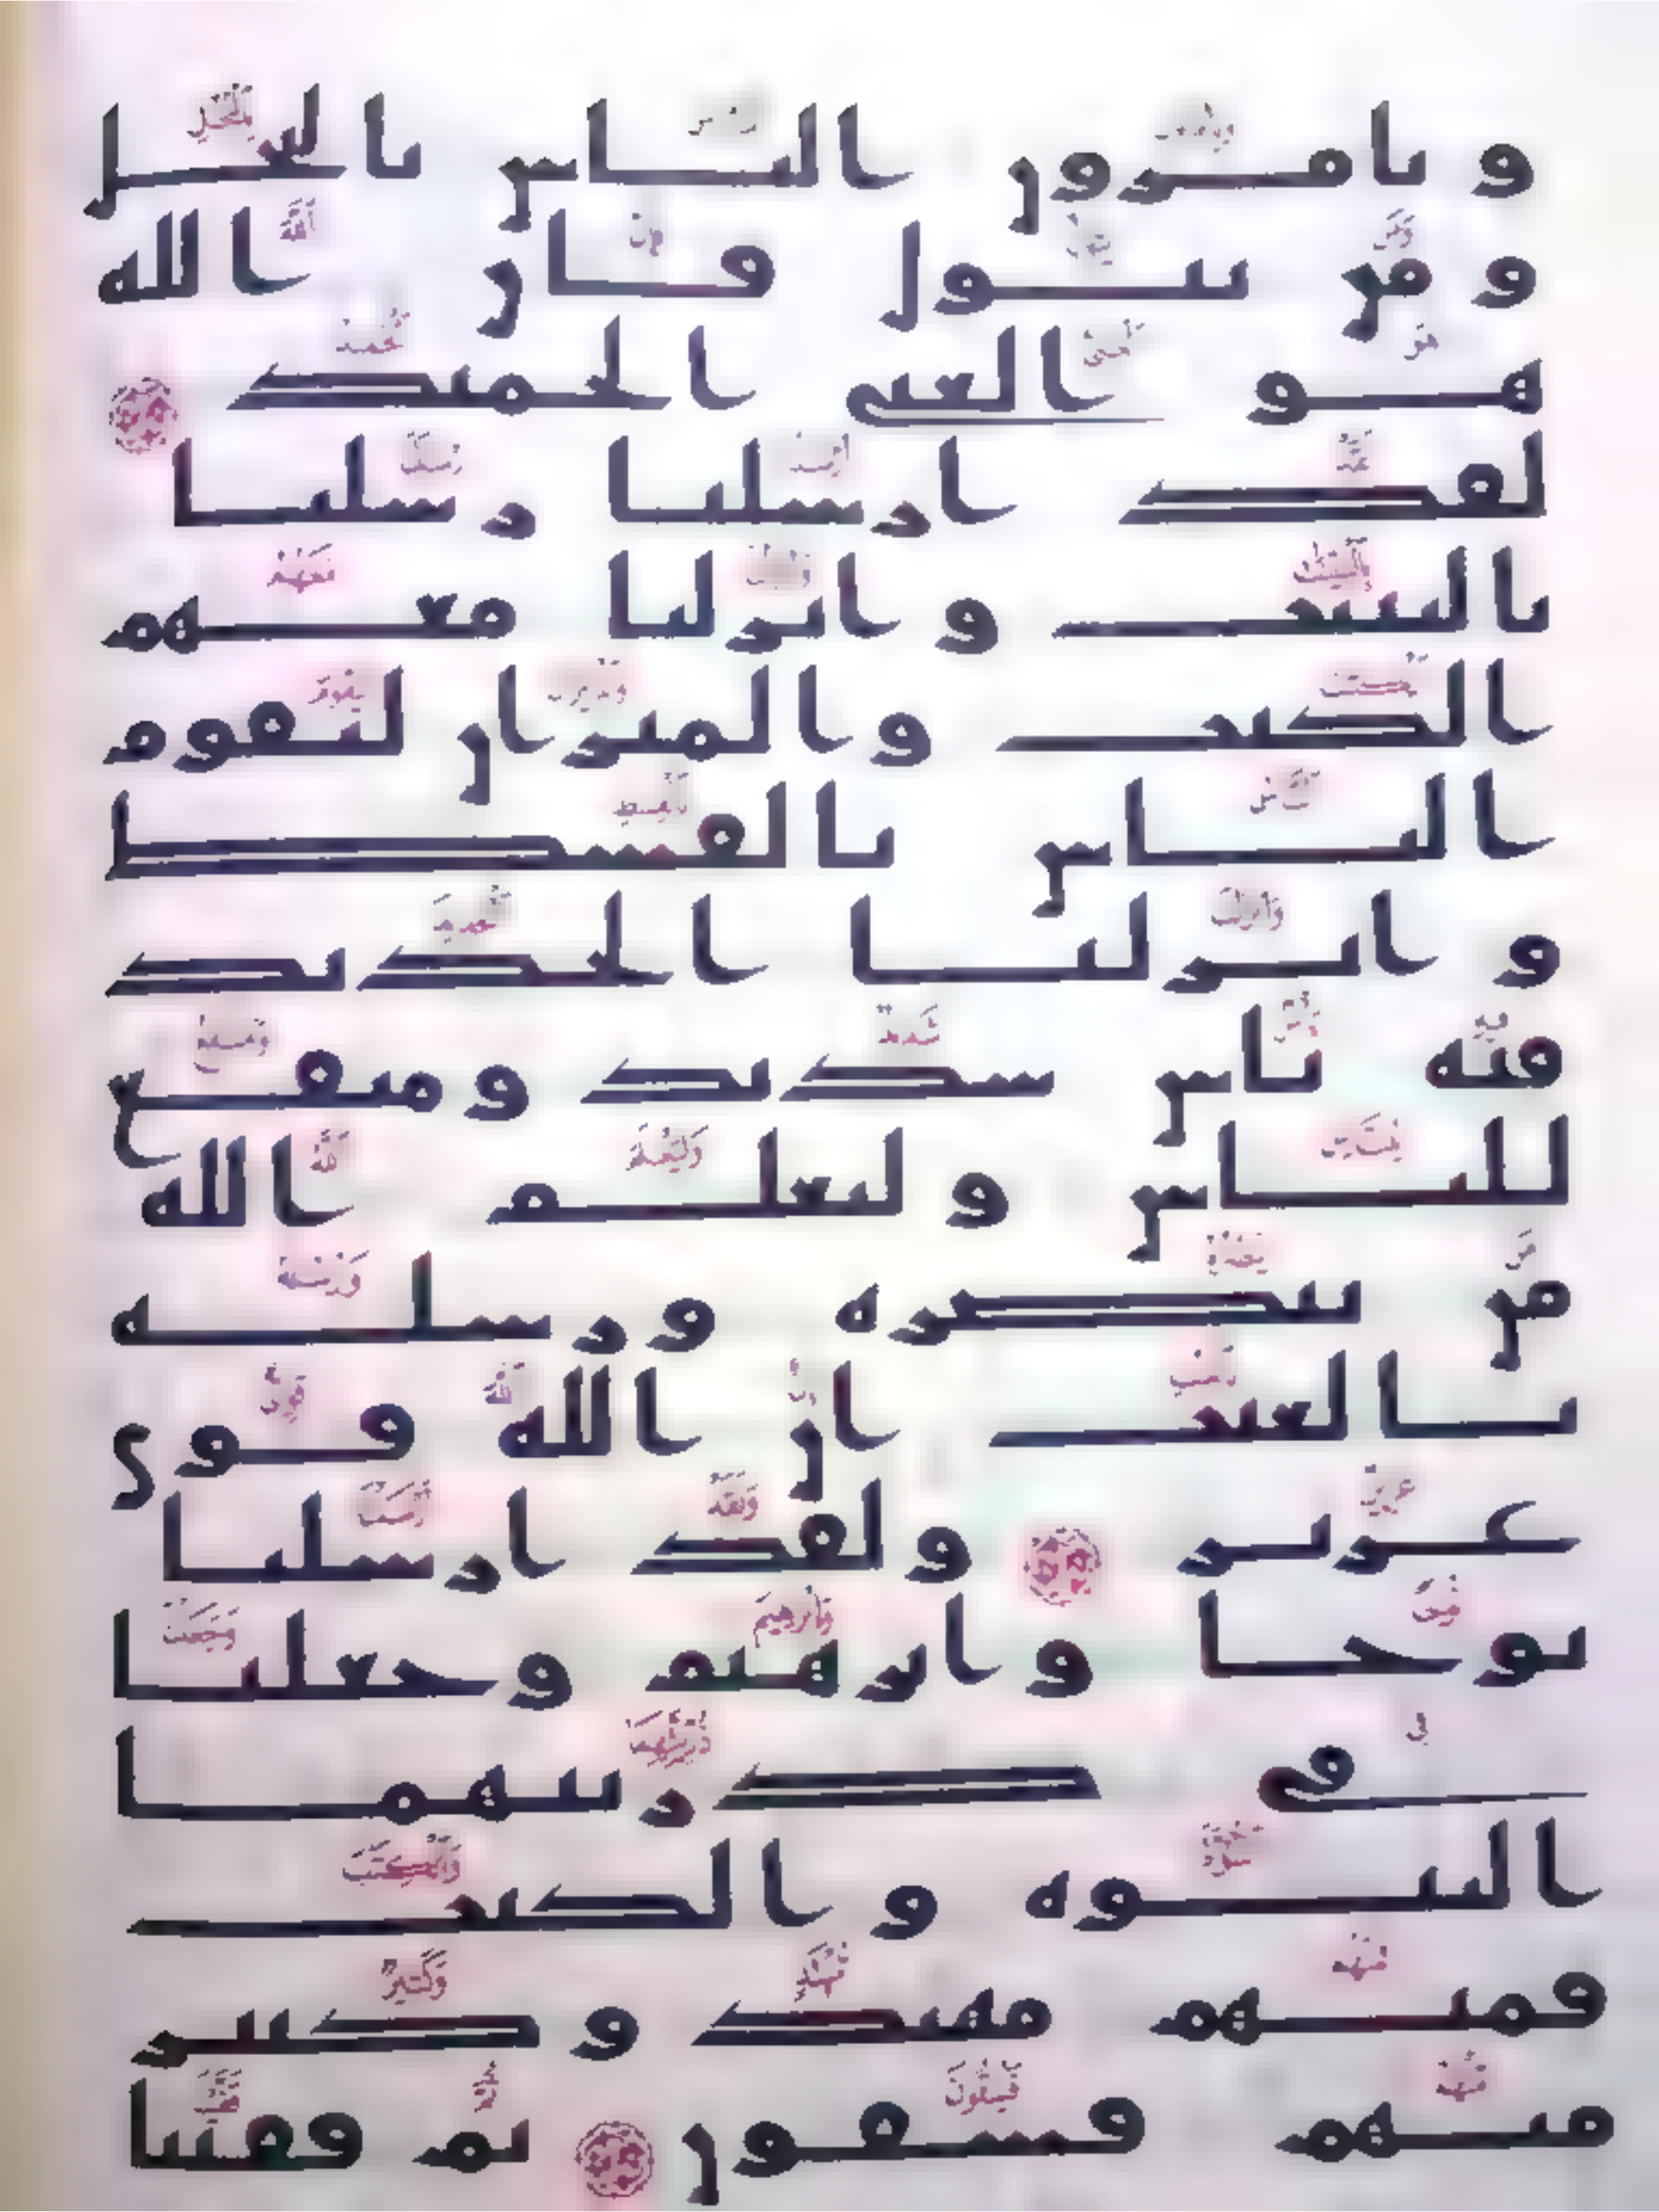 ويامرون الناس بالبخل
ومن يتول فان الله
هو الغنى الحميد
لقد ارسلنا رسلنا
بالبينت وانزلنا معهم
الكتب والميزان ليقوم
الناس بالقسط
وانزلنا الحديد
فيه باس شديد ومنفع
للناس وليعلم الله
من ينصره ورسله
بالغيب ان الله قوى
عزيز ولقد ارسلنا
نوحا وابرهيم وجعلنا
فى ذريتهما
النبوه والكتب
فمنهم مهتد وكثير
منهم فسقون ثم قفينا